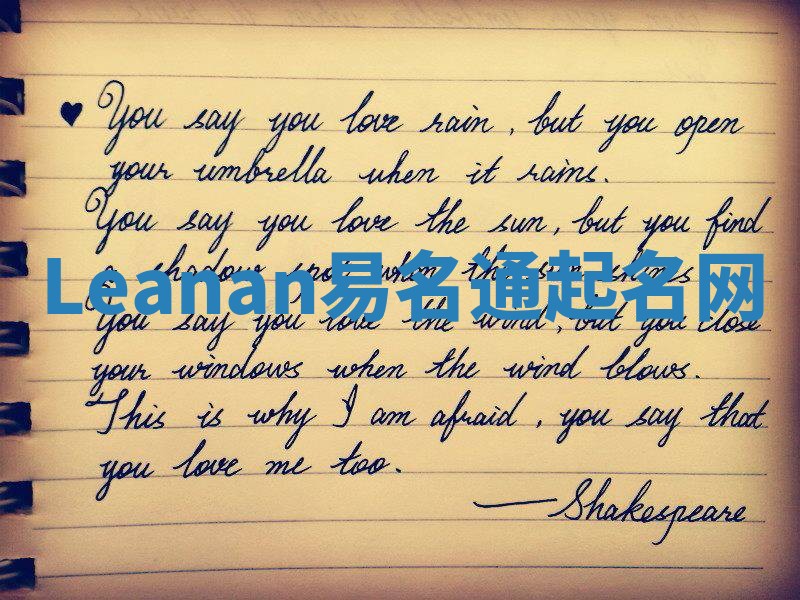 ♥ You say you love rain, but you open
your umbrella when it rains.
You say you love the sun, but you find
a shadow spot when the sun shines
Leanan易名通起名网
You say you love the wind, but you close
your windows when the wind blows.
This is why I am afraid, you say that
you love me too.
—Shakespeare